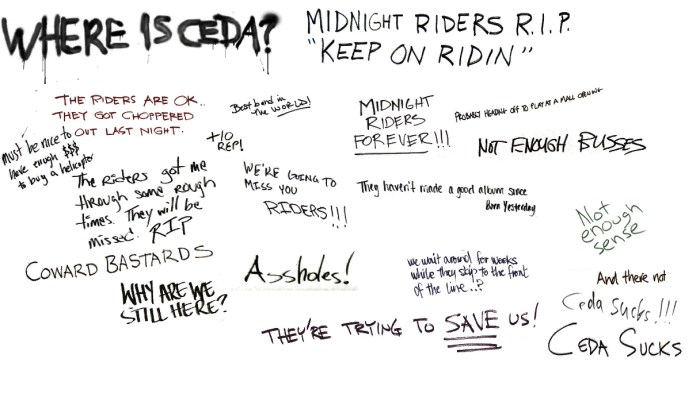 WHERE IS CEDA?
MIDNIGHT RIDERS R.I.P.
"KEEP ON RIDIN"
THE RIDERS ARE OK..
THEY GOT CHOPPERED
OUT LAST NIGHT.
must be nice to
have enough $$$
to buy a helicopter
Best band in
the WORLD!
+10
REP!
MIDNIGHT
RIDERS
FOREVER!!!
PROBABLY HEADING OFF TO PLAY AT A MALL OPENING
NOT ENOUGH BUSSES
The Riders got me
through some rough
times. They will be
missed. RIP
WE'RE GOING TO
MISS YOU
RIDERS!!!
They haven't made a good album since
Born Yesterday
Not
enough
sense
COWARD BASTARDS
Assholes!
WHY ARE WE
STILL HERE?
we wait around for weeks
while they skip to the front
of the line..?
THEY'RE TRYING TO SAVE US!
And there not
Ceda Sucks!!!
CEDA SUCKS